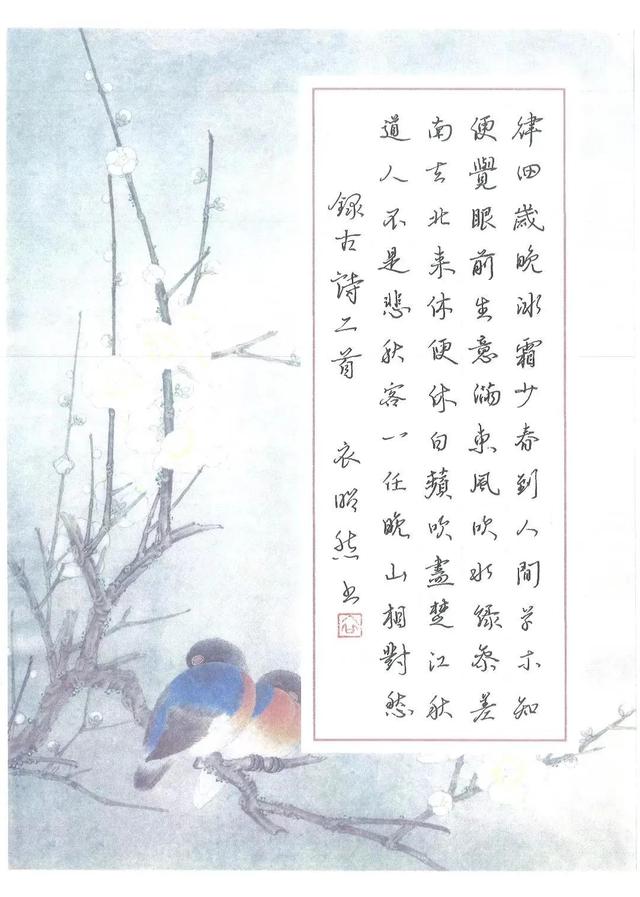 律回歲晚冰霜少春到人間草木知
便覺眼前生意滿東風吹水綠參差
南去北来休便休白蘋吹盡楚江秋
道人不是悲秋客一任晚山相對愁
録古詩二首 衣然书